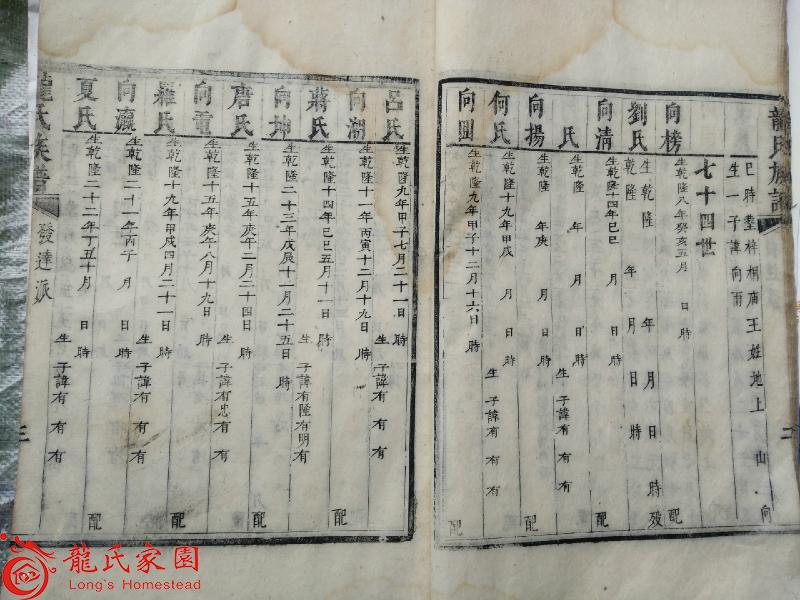 龍氏族譜
二
巳時塟梓桐庙王姓地上 山 向
生一子諱向雨
七十四世
向榜 生乾隆八年癸亥五月 日 時 配
劉氏 生乾隆 年 月 日 時 殁
乾隆 年 月 日 時
向清 生乾隆十四年己巳 月 日 時 配
氏 生乾隆 年 月 日 時 生 子諱有 有 有
向揚 生乾隆 年庚 月 日 時 配
何氏 生乾隆十九年甲戌 月 日 時 生 子諱有 有 有
向圓 生乾隆九年甲子十二月十六日 時 配
呂氏 生乾隆九年甲子七月二十一日 時 生 子諱有 有 有
向湖 生乾隆十一年丙寅十二月十九日 時 配
蔣氏 生乾隆十四年己巳五月十一日 時 生 子諱有隆有明有
向坤 生乾隆二十三年戊辰十一月二十五日 時 配
唐氏 生乾隆十五年庚午二月二十四日 時 生 子諱有忠有 有
向電 生乾隆十五年庚午八月十九日 時 配
羅氏 生乾隆十九年甲戌四月二十一日 時 生 子諱有 有 有
向瀛 生乾隆二十一年丙子 月 日 時 配
夏氏 生乾隆二十二年丁丑十月 日 時 生 子諱有 有 有
龍氏族譜 發達派
二
龍氏家園
Long's Homestead